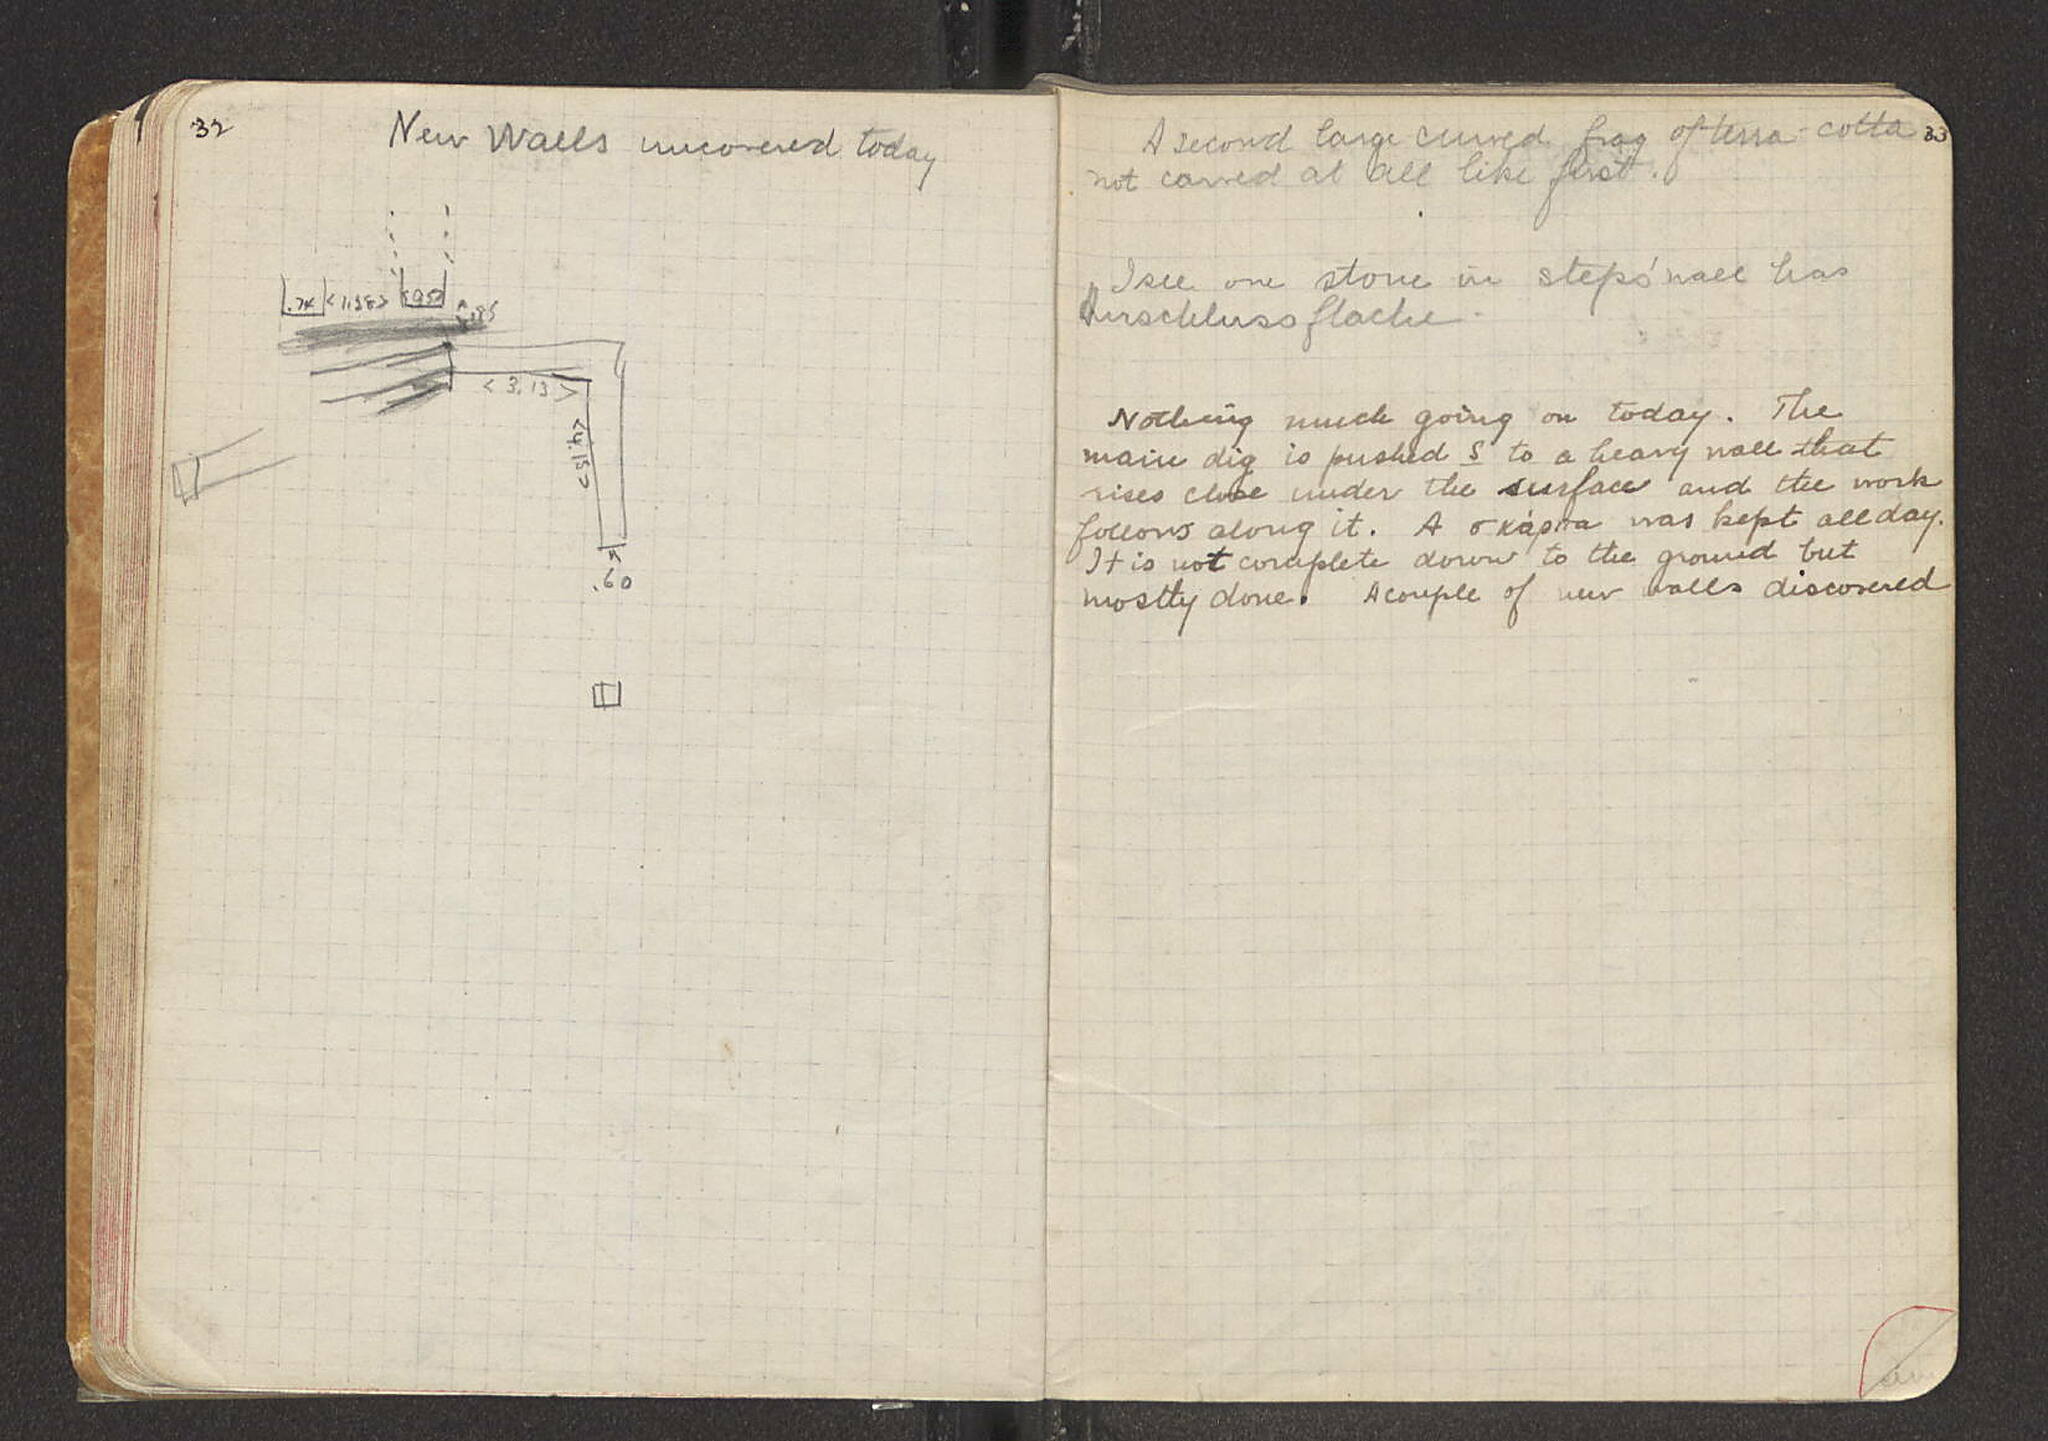 32
New Walls uncovered today
.74 < 1.38 > .95
.85
< 3.13 >
< 4.15 >
.60
33
A second large curved frag of terra-cotta
not carved at all like first.
I see one stone in steps' wall has
Anschlussflache.
Nothing much going on today. The
main dig is pushed S to a heavy wall that
rises close under the surface and the work
follows along it. A σκάρσα was kept all day.
It is not complete down to the ground but
mostly done. A couple of new walls discovered